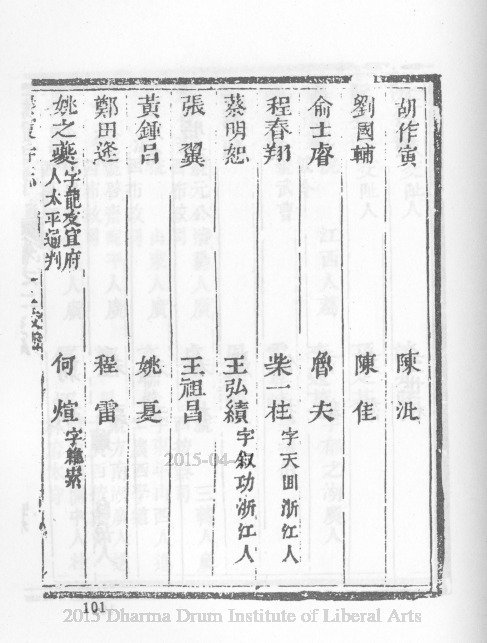 胡作寅 陳沚
劉國輔 陳隹
俞士睿 魯夫
程春翔 柴一柱 字天囬浙江人
蔡明恕 王弘績 字叙功浙江人
張翼 王祖昌
黃鍾呂 姚夏
鄭田逢 程雷
姚之夔 字龍友宜府人太平通判 何煊 字
2015-04-
101
2015 Dharma Drum Institute of Liberal Arts